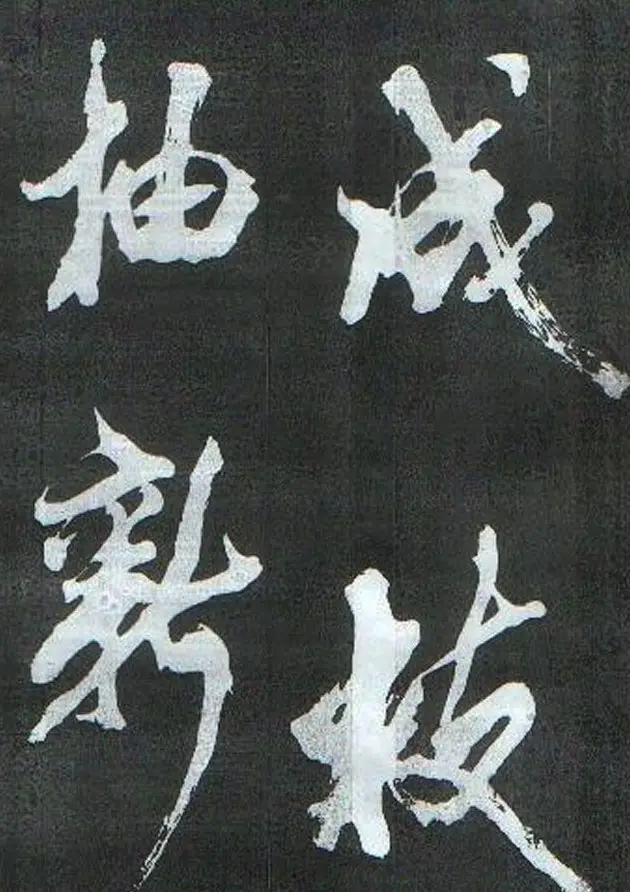 成枝
抽新